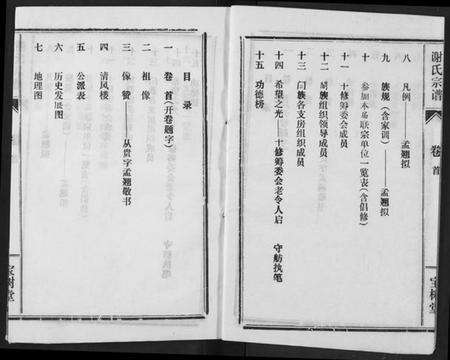 谢氏宗谱
卷首
宝树堂
目录
一 卷首(开卷题字)
二 祖像
三 像赞——从贵字孟翘敬书
四 清风楼
五 公派表
六 历史发展图
七 地理图
八 凡例——孟翘拟
九 族规(含家训)——孟翘拟
十 参加本届联宗单位一览表(含倡修)
十一 十修筹委会成员
十二 阖族组织领导成员
十三 阖族各支房组织成员
十四 希望之光——十修筹委会老令人启 守舫执笔
十五 功德榜